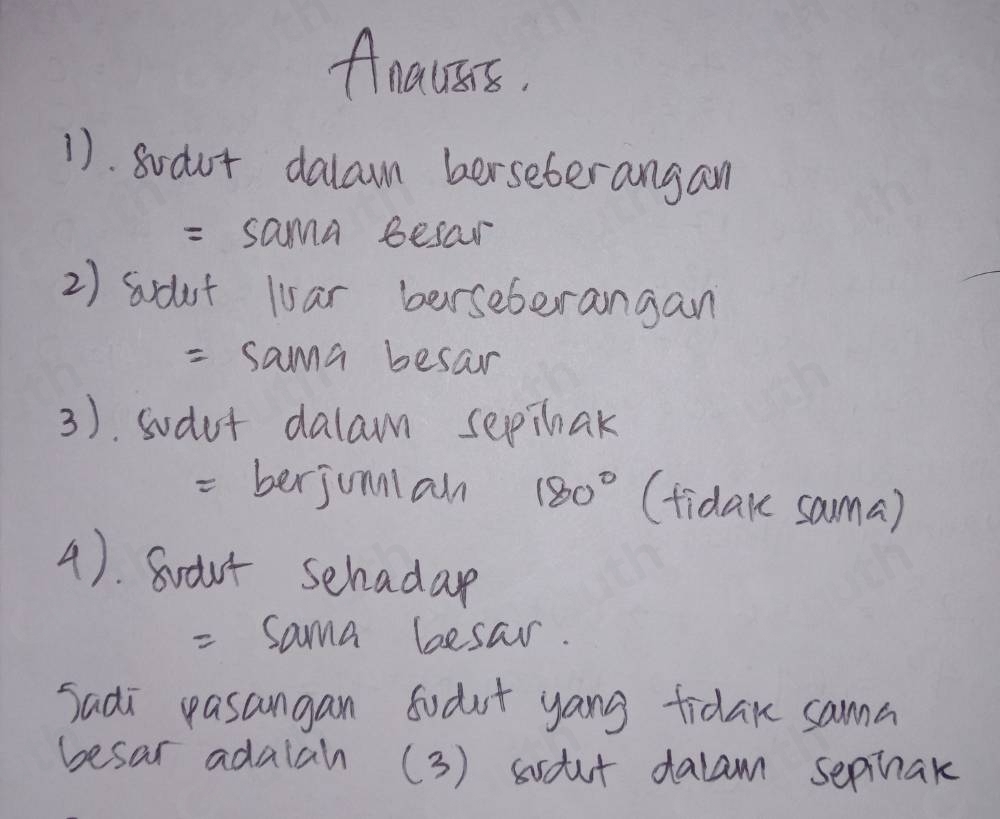 Analisis.
1). Sudut dalam berseberangan
= sama besar
2) Sudut luar berseberangan
= sama besar
3). Sudut dalam sepihak
= berjumlah 180° (tidak sama)
4). Sudut sehadap
= sama besar.
Jadi pasangan sudut yang tidak sama
besar adalah (3) sudut dalam sepihak